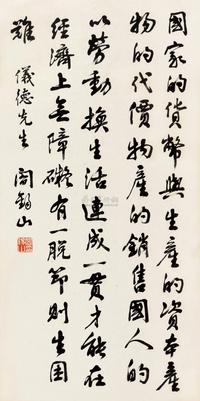 國家的貨幣與生產的資本產
物的代價物產的銷售國人的
以勞動換生活連成一貫才能在
經濟上無障礙有一脫節則生困
難
儀德先生 閻錫山